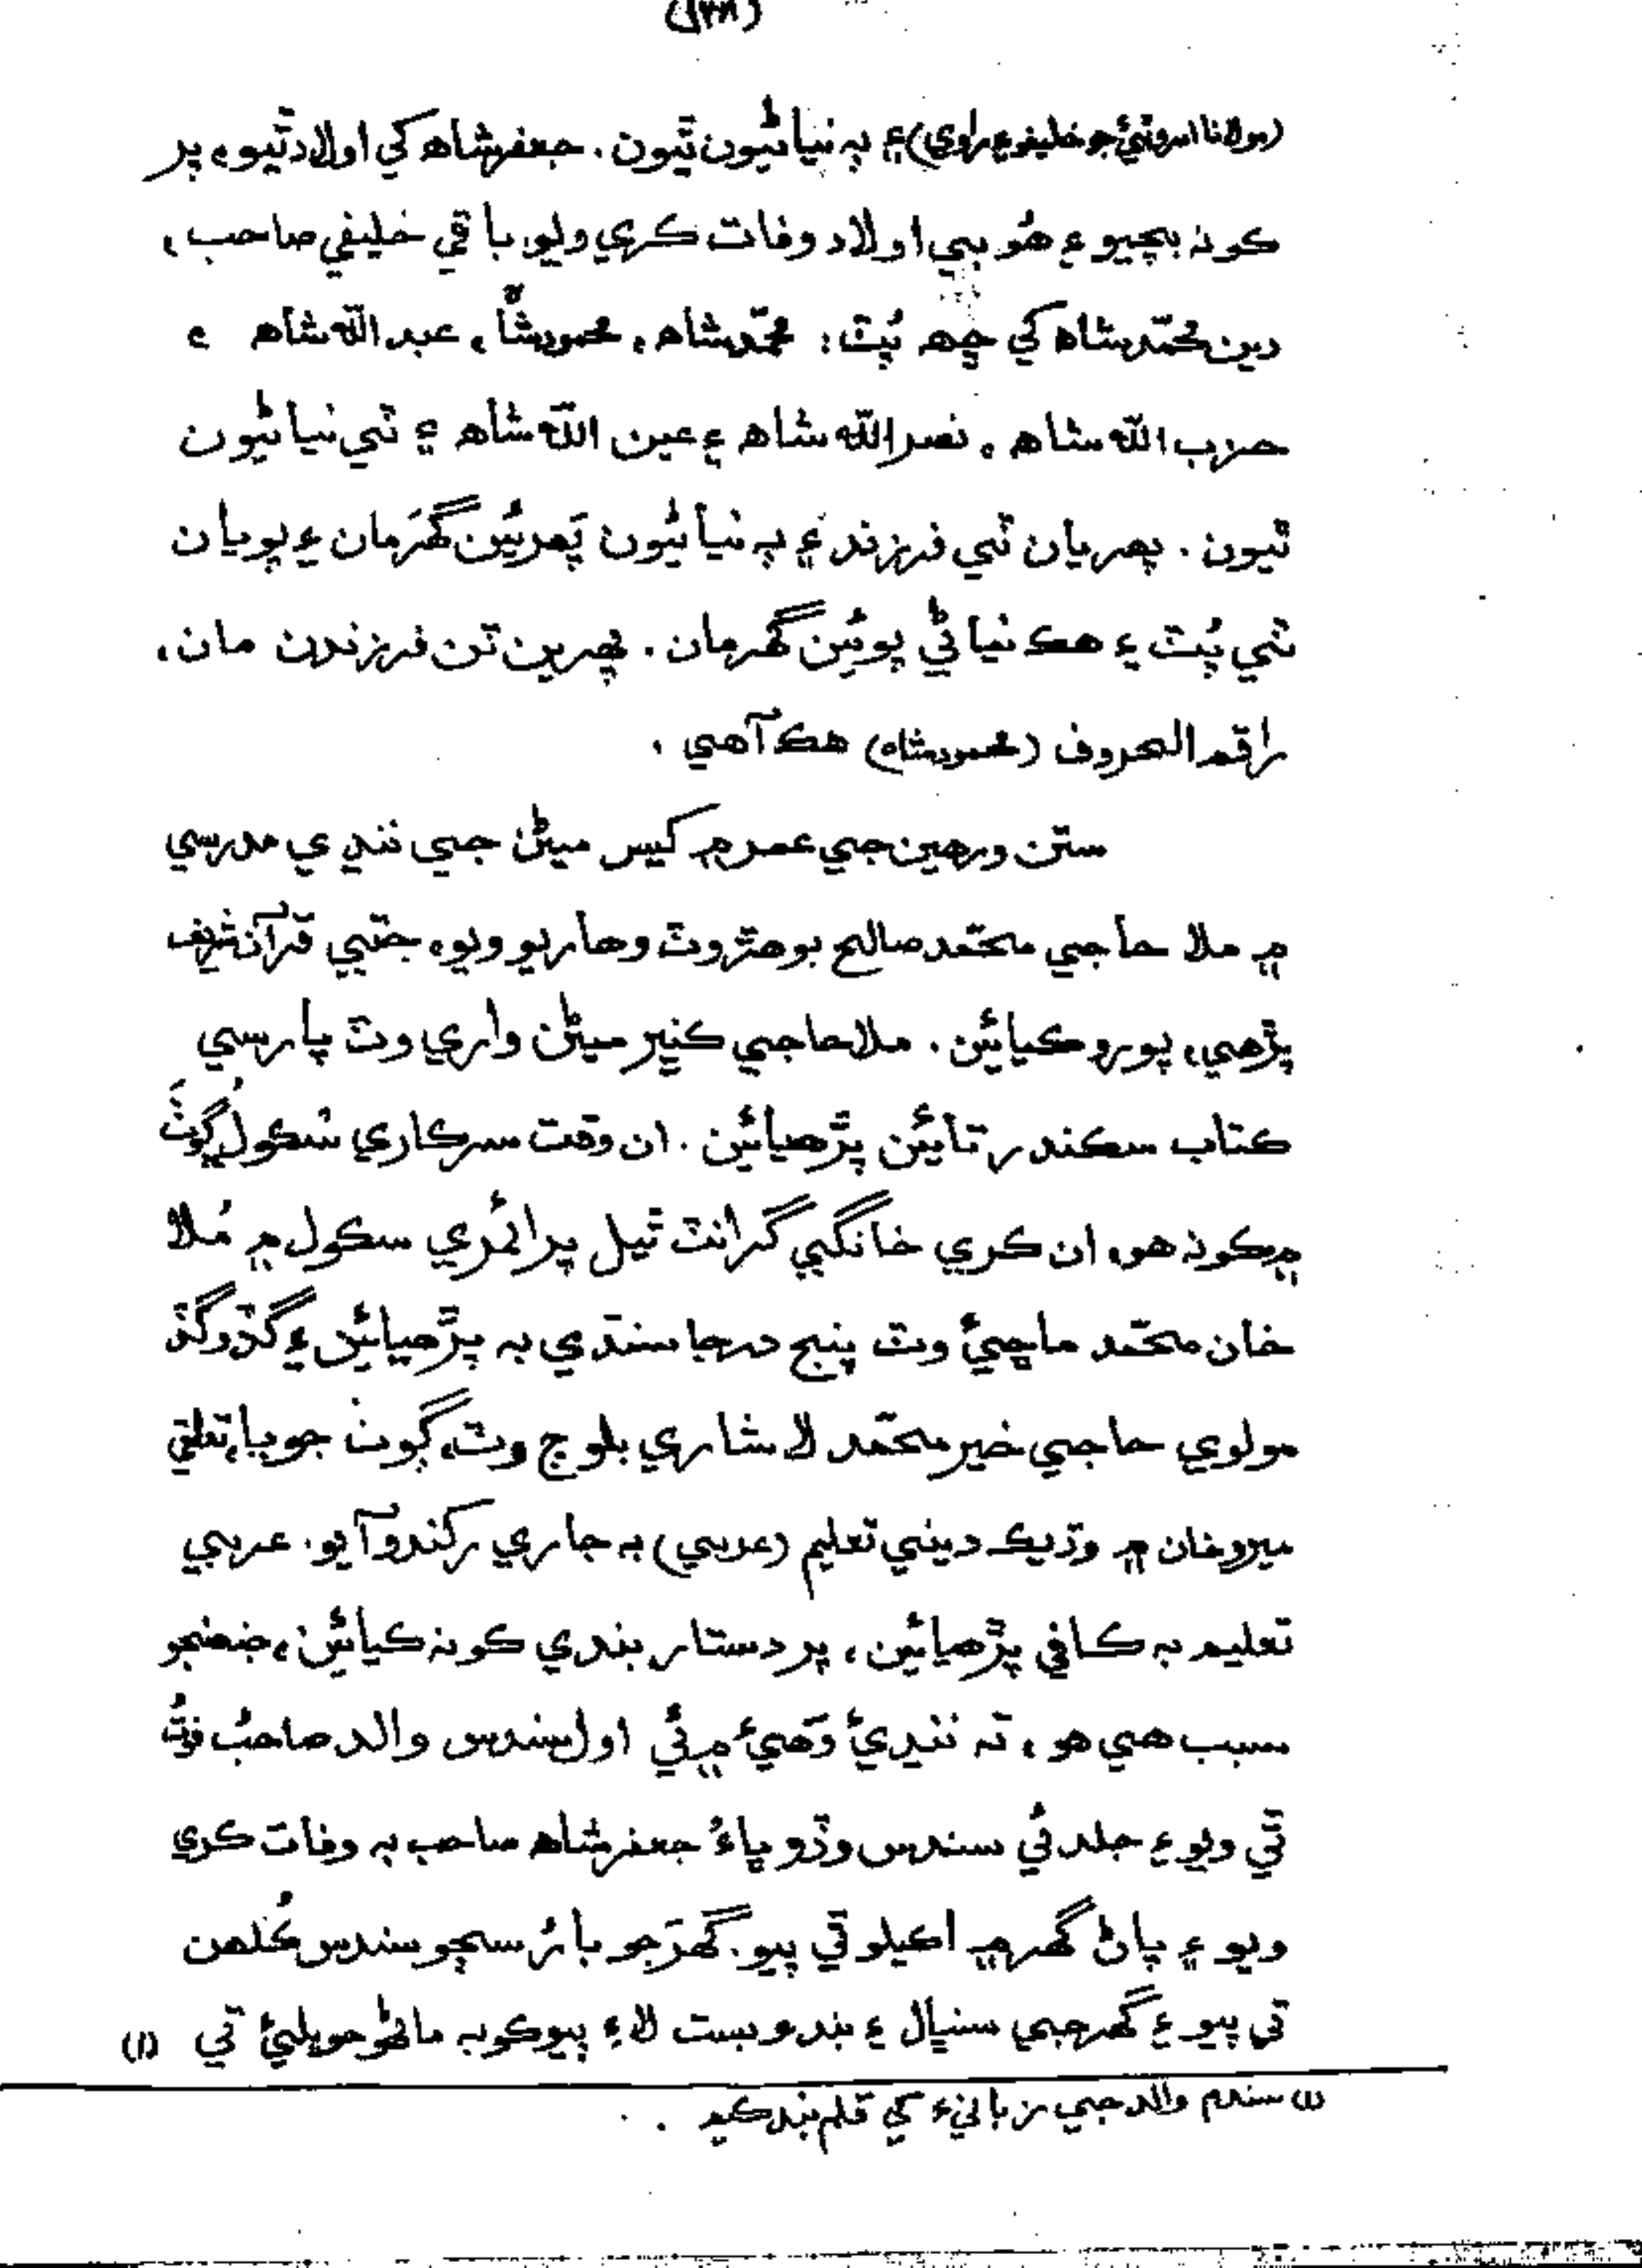 (مولانا امروٽيءَ جو خليفو ۽ راوي) ۽ ٻه نياڻيون ٿيون. جعفرشاھ کي اولاد ٿيو، پر
ڪونه بچيو ۽ هُو بي اولاد وفات ڪري ويو. باقي خليفي صاحب،
دين محمّد شاھ کي ڇھ پُٽ: محمّد شاھ، محمود شاھ، عبدالله شاھ،
حزب الله شاھ، نصرالله شاھ ۽ عين الله شاھ ۽ ٽي نياڻيون
ٿيون. پهريان ٽي فرزند ۽ ٻه نياڻيون پَهرئين گهرَمان ۽ پويان
ٽي پُٽ ۽ هڪ نياڻي پوئين گهرمان. پهرين ٽن فرزندن مان،
راقم الحروف (محمود شاھ) هڪ آهي.
ستن ورهين جي عمر ۾ کيس ميڻن جي ننڍي مدرسي
۾ ملا حاجي محمّد صالح ٻوهڙ وٽ وهاريو ويو، جتي قرآن شريف
پڙهي، پورو ڪيائين. ملا حاجي ڪنير ميڻن واري وٽ پارسي
ڪتاب سڪندر تائين پڙهيائين. ان وقت سرڪاري سُڪولُ ڳوٺَ
۾ ڪونه هو، ان ڪري خانگي گرانٽ ٿيل پرائمري سڪول ۾ مُلا
خان محمّد ماڇيءَ وٽ پنج درجا سنڌي به پڙهيائين ۽ گڏوگڏ
مولوي حاجي خير محمّد لاشاري بلوچ وٽ، ڳوٺ جويا، تعلقي
ميروخان ۾ وڌيڪ ديني تعليم (عربي) به جاري رکندو آيو. عربي
تعليم به ڪافي پڙهيائين، پر دستار بندي ڪونه ڪيائين، جنهنجو
سبب هي هو، ته ننڍيءَ وَهيءَ ۾ ئي اول سندس والد صاحبُ فوت
ٿي ويو ۽ جلد ئي سندس وڏو ڀاءُ جعفرشاھ صاحب به وفات ڪري
ويو ۽ پاڻ گهر ۾ اڪيلو ٿي پيو. گهرَجو بارُ سڄو سندس ڪُلهن
تي پيو ۽ گهرجي سنڀال ۽ بندوبست لاءِ ٻيو ڪو به ماڻهو حويليءَ تي (۱)
(۱) سندم والد جي زبانيءَ کي قلم بند ڪيم.